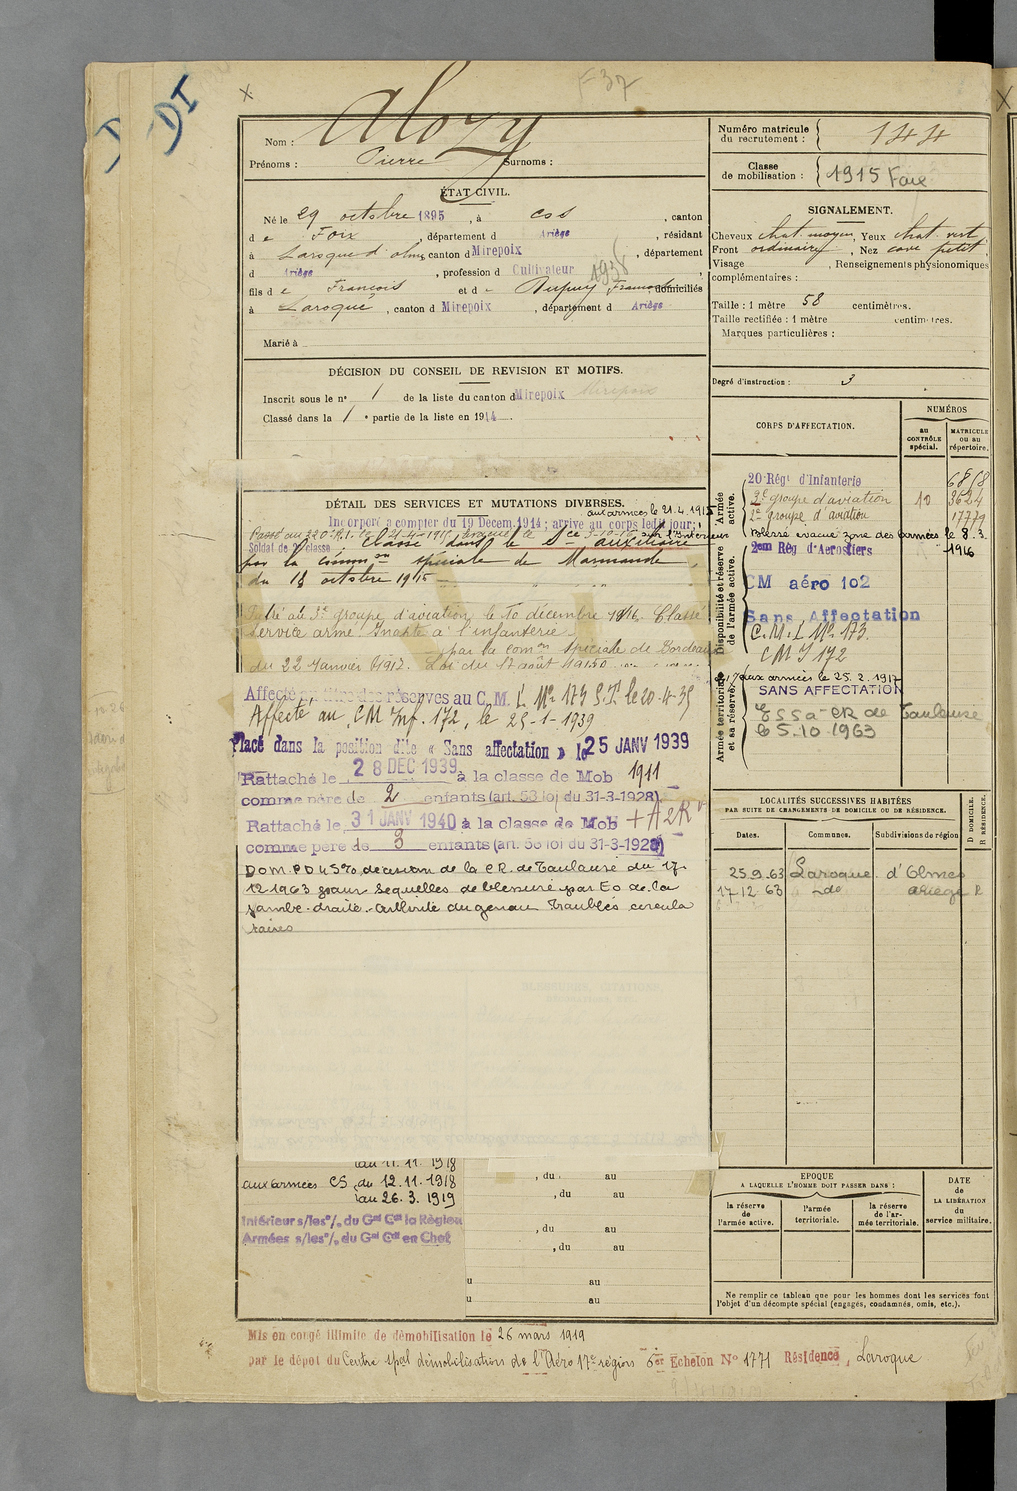 F 37
DI
Nom : Alozy
Prénoms : Pierre Surnoms :
Numéro matricule du recrutement : 144
Classe de mobilisation : 1915 Foix
ÉTAT CIVIL.
Né le 29 octobre 1895, à Cos, canton
de Foix, département d Ariège, résidant
à Laroque d'olmes, canton d Mirepoix, département
d Ariège, profession d Cultivateur
1938
fils de François et de Dupuy Françoise, domiciliés
à Laroque, canton d Mirepoix, département d Ariège
Marié à
SIGNALEMENT.
Cheveux chat. moyen, Yeux chat. vert
Front ordinaire, Nez cave petit,
Visage , Renseignements physionomiques
complémentaires :
Taille : 1 mètre 58 centimètres.
Taille rectifiée : 1 mètre centimètres.
Marques particulières :
Degré d'instruction : 3
DÉCISION DU CONSEIL DE REVISION ET MOTIFS.
Inscrit sous le n° 1 de la liste du canton d Mirepoix
Classé dans la 1e partie de la liste en 1914.
DÉTAIL DES SERVICES ET MUTATIONS DIVERSES.
aux armées le 21.4.1915
Incorporé à compter du 19 Décem. 1914 ; arrivé au corps ledit jour ;
Soldat de 2e classe
Classé dans le Sce auxiliaire
par la common spéciale de Marmande
du 18 octobre 1915
Passé au 2e groupe d'aviation le 10 décembre 1916. Classé
service armé. Inapte à l'infanterie
par la comon spéciale de Bordeaux
du 22 Janvier 1917. Loi du 17 août 1915
Affecté au titre des réserves au C.M.I. No 173 S.P. le 20-4-35
Affecté au CM Inf. 172, le 25-1-1939
Placé dans la position dite « Sans affectation » le 25 JANV 1939
Rattaché le 28 DEC 1939 à la classe de Mob 1911
comme père de 2 enfants (art. 58 loi du 31-3-1928)
Rattaché le 31 JANV 1940 à la classe de Mob + A2R
comme père de 3 enfants (art. 58 loi du 31-3-1928)
Dom. PD 45%, décision de la CR. de Toulouse du 17-
12 1963 pour Séquelles de blessure par Eo de la
jambe droite. Arthrite du genou Troubles circula
toires
CORPS D'AFFECTATION.
NUMÉROS
au CONTRÔLE spécial.
MATRICULE ou au répertoire.
Armée active.
20 Régt d'Infanterie 6868
2e groupe d'aviation 10 3624
2e groupe d'aviation 17779
Blessé évacué zone des armées le 8.3.
1916
Disponibilité et réserve de l'armée active.
2em Rég d'Aerostiers
CM aéro 102
Sans Affectation
C.M.I. No 173.
CM I 172
Armée territoriale et sa réserve.
aux armées le 25.2.1917
SANS AFFECTATION
CR de Toulouse
le 5.10 1963
LOCALITÉS SUCCESSIVES HABITÉES
PAR SUITE DE CHANGEMENTS DE DOMICILE OU DE RÉSIDENCE.
Dates. Communes. Subdivisions de région
D DOMICILE.
R RÉSIDENCE.
25.9.63 Laroque d'Olmes
17.12 63 " de Ariège R
au 11.11.1918
aux armées CS du 12.11.1918
au 26.3.1919
Intérieur s/les °/. du Gal Cdt la Région
Armées s/les °/. du Gal Cdt en Chef
, du au
, du au
, du au
, du au
u au
u au
EPOQUE
A LAQUELLE L'HOMME DOIT PASSER DANS :
la réserve de l'armée active.
l'armée territoriale.
la réserve de l'armée territoriale.
DATE de LA LIBÉRATION du service militaire.
Ne remplir ce tableau que pour les hommes dont les services font
l'objet d'un décompte spécial (engagés, condamnés, omis, etc.).
Mis en congé illimité de démobilisation le 26 mars 1919
par le dépôt du Centre spal démobilisation de l'Aéro 17e région 6er Echelon No 1771 Résidence, Laroque